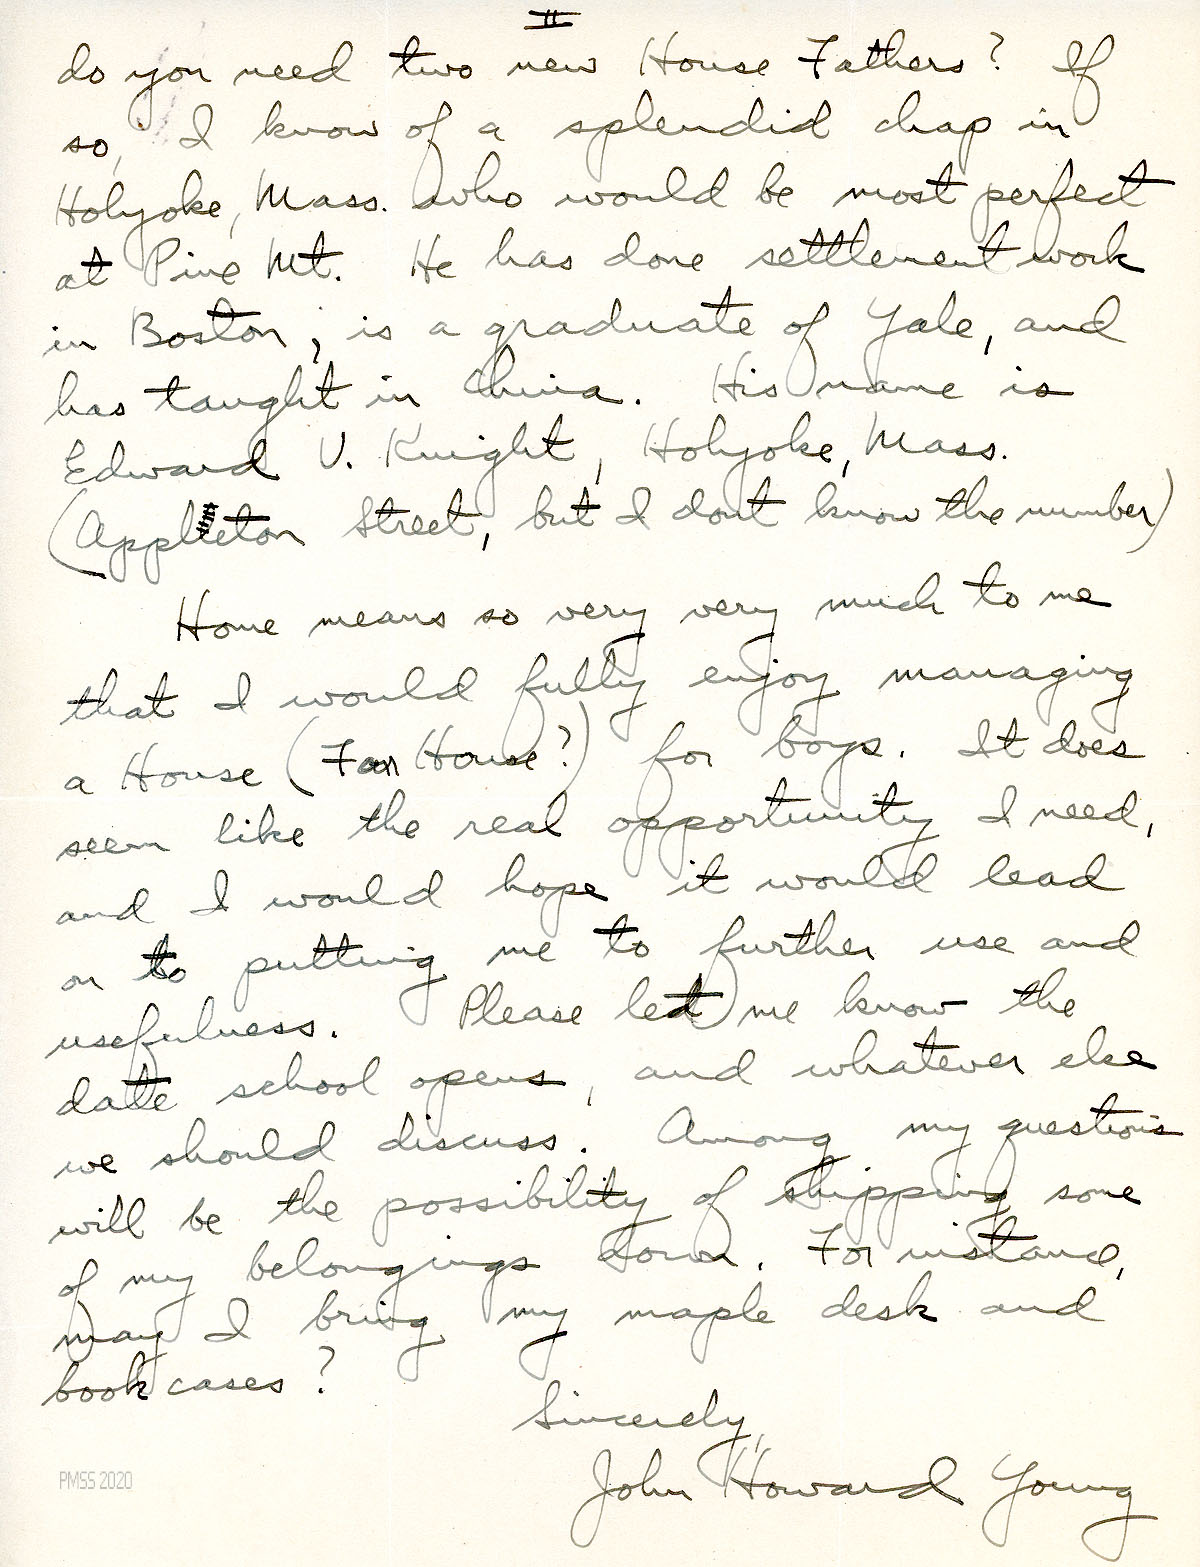 II
do you need two new House Fathers? If
so, I know of a splendid chap in
Holyoke, Mass. who would be most perfect
at Pine Mt. He has done settlement work
in Boston, is a graduate of Yale, and
has taught in China. His name is
Edward V. Knight, Holyoke, Mass.
(Appleton Street, but I dont know the number)
Home means so very very much to me
that I would fully enjoy managing
a House (Far House?) for boys. It does
seem like the real opportunity I need,
and I would hope it would lead
on to putting me to further use and
usefulness. Please let me know the
date school opens, and whatever else
we should discuss. Among my questions
will be the possibility of shipping some
of my belongings down. For instance,
may I bring my maple desk and
book cases?
Sincerely,
John Howard Young
PMSS 2020